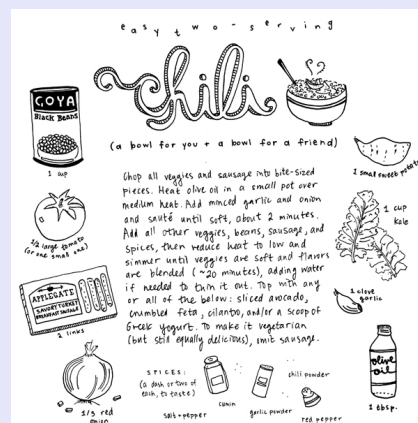 easy two-serving
chili
(a bowl for you + a bowl for a friend)
GOYA
Black Beans
1 cup
1 small sweet potato
Chop all veggies and sausage into bite-sized
pieces. Heat olive oil in a small pot over
medium heat. Add minced garlic and onion
and sauté until soft, about 2 minutes.
Add all other veggies, beans, sausage, and
spices, then reduce heat to low and
simmer until veggies are soft and flavors
are blended (~20 minutes), adding water
if needed to thin it out. Top with any
or all of the below: sliced avocado,
crumbled feta, cilantro, and/or a scoop of
Greek yogurt. To make it vegetarian
(but still equally delicious), omit sausage.
1/2 large tomato
(or one small one)
1 cup
kale
APPLEGATE
SAVORY TURKEY
BREAKFAST SAUSAGE
2 links
1 clove
garlic
olive
oil
1 tbsp.
1/3 red
onion
SPICES:
(a dash or two of
each, to taste)
salt + pepper
cumin
garlic powder
chili powder
red pepper